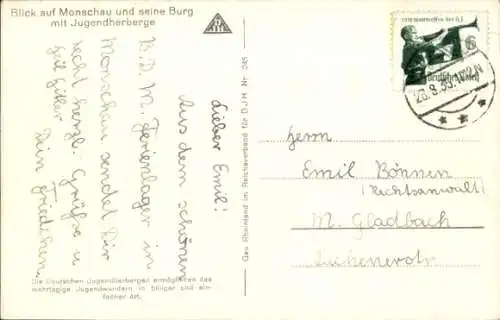 Blick auf Monschau und seine Burg
mit Jugendherberge
Lieber Emil!
Aus dem schönen
B.D.M. Ferienlager in
Monschau sendet Dir
recht herzl. Grüße u
Heil Hitler
Dein Friedchen
Die Deutschen Jugendherbergen ermöglichen das
mehrtägige Jugendwandern in billiger und ein-
facher Art.
Gau Rheinland im Reichsverband für DJH Nr.
Deutsches Reich
6
Herrn
Emil Bönnen
(Rechtsanwalt)
M. Gladbach